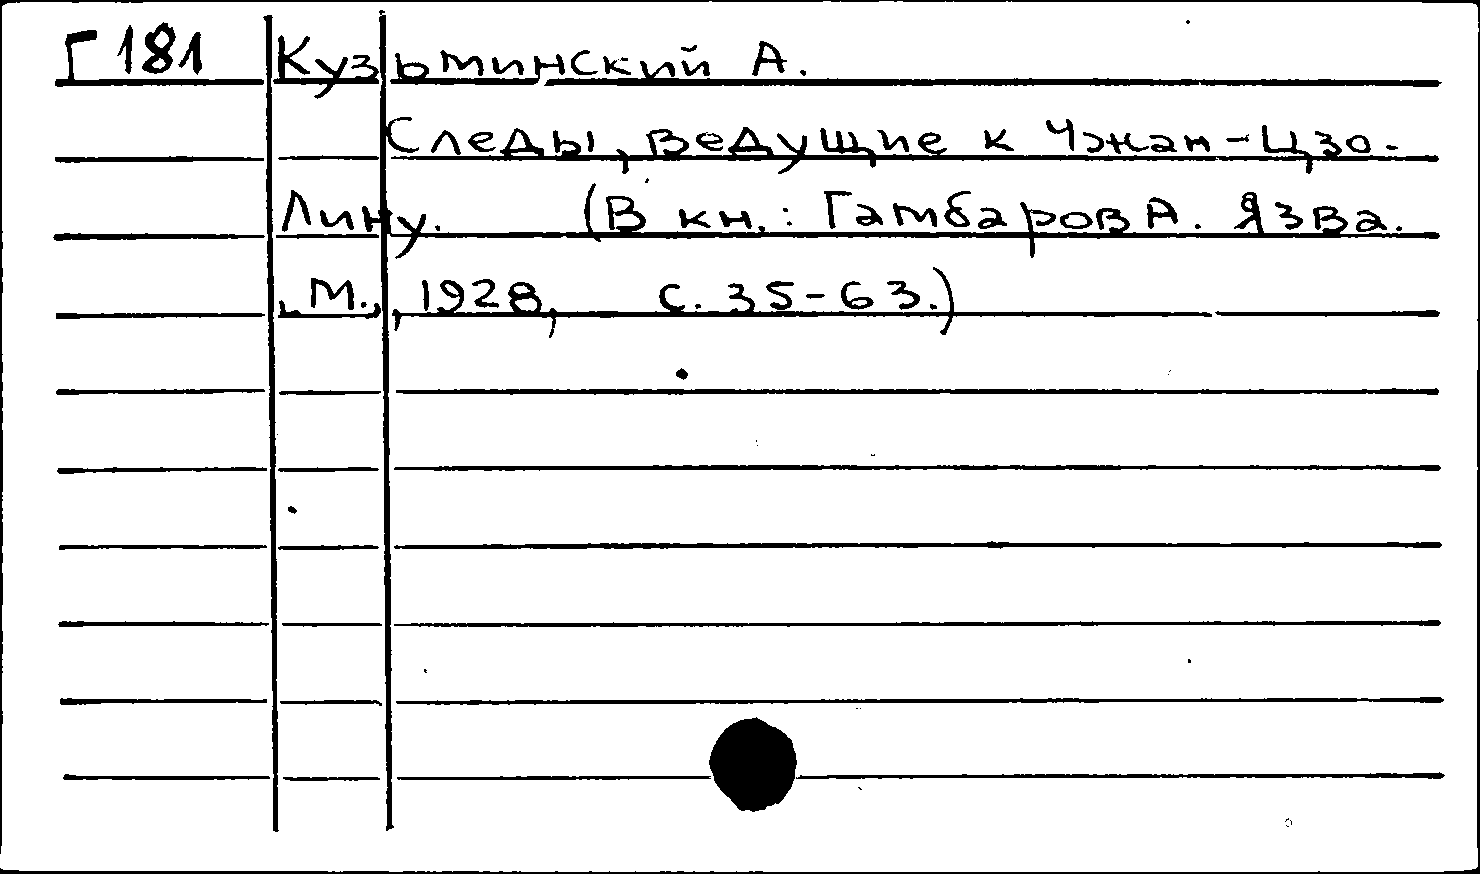 Г 181 Кузьминский А.
Следы, ведущие к Чжан-Цзо-
Лину. (В кн.: Гамбаров А. Язва.
, М., , 1928, с. 35-63.)